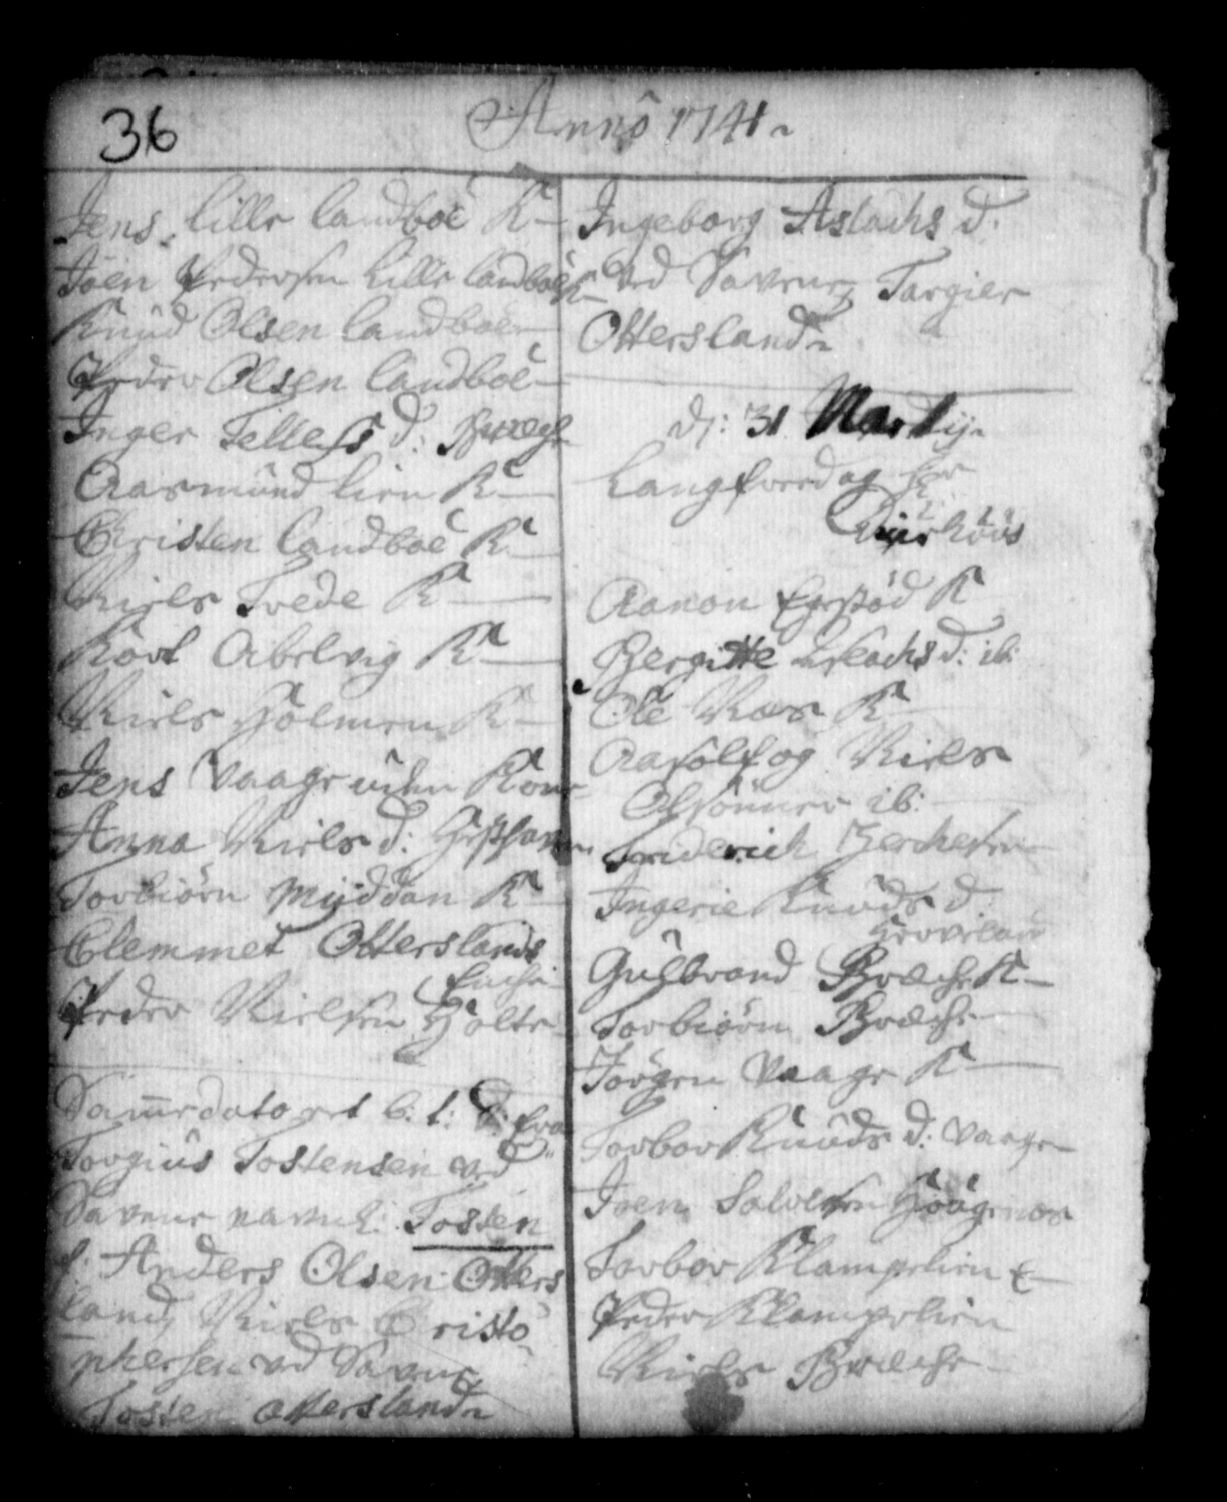 36
Anno 1741
Jens lille landboe K
Joen Pedersen lille landboe K
Knud Olsen landboe
Peder Olsen landboe
Inger Tellefs d:
Aasmund lien K
Christen landboe K
Niels Tvede K
Kort Abelvig K
Niels Holmen K
Jens Vaage uden Kone
Anna Niels d:
Torbiørn Myddan K
Clemmet Otterslands
Enche
Peder Nielsen Holte
Samme dato b: t: fra
Torgius Tostensen ved
Savene navnl: Tosten
f: Anders Olsen Otters
land, Niels Cristo
phersen ved Savene
Tosten Otterslands
Ingeborg Aslachs d:
ved Savene, Targier
Ottersland
d: 31 Martij
Langfredag
Dürhuus
Aanon K
Bergitte Aslachs d: ib:
Ole Næs K
Aasolf og Niels
Olsønner ib:
Friderich Gerchesen
Ingerie Knuds d
Gulbrand Bræche K
Torbiørn Bræche
Jørgen Vaage K
Torbor Knuds d: Vaage
Joen Salvesen
Torbor Klampelien E
Peder Klampelien
Niels Bræche